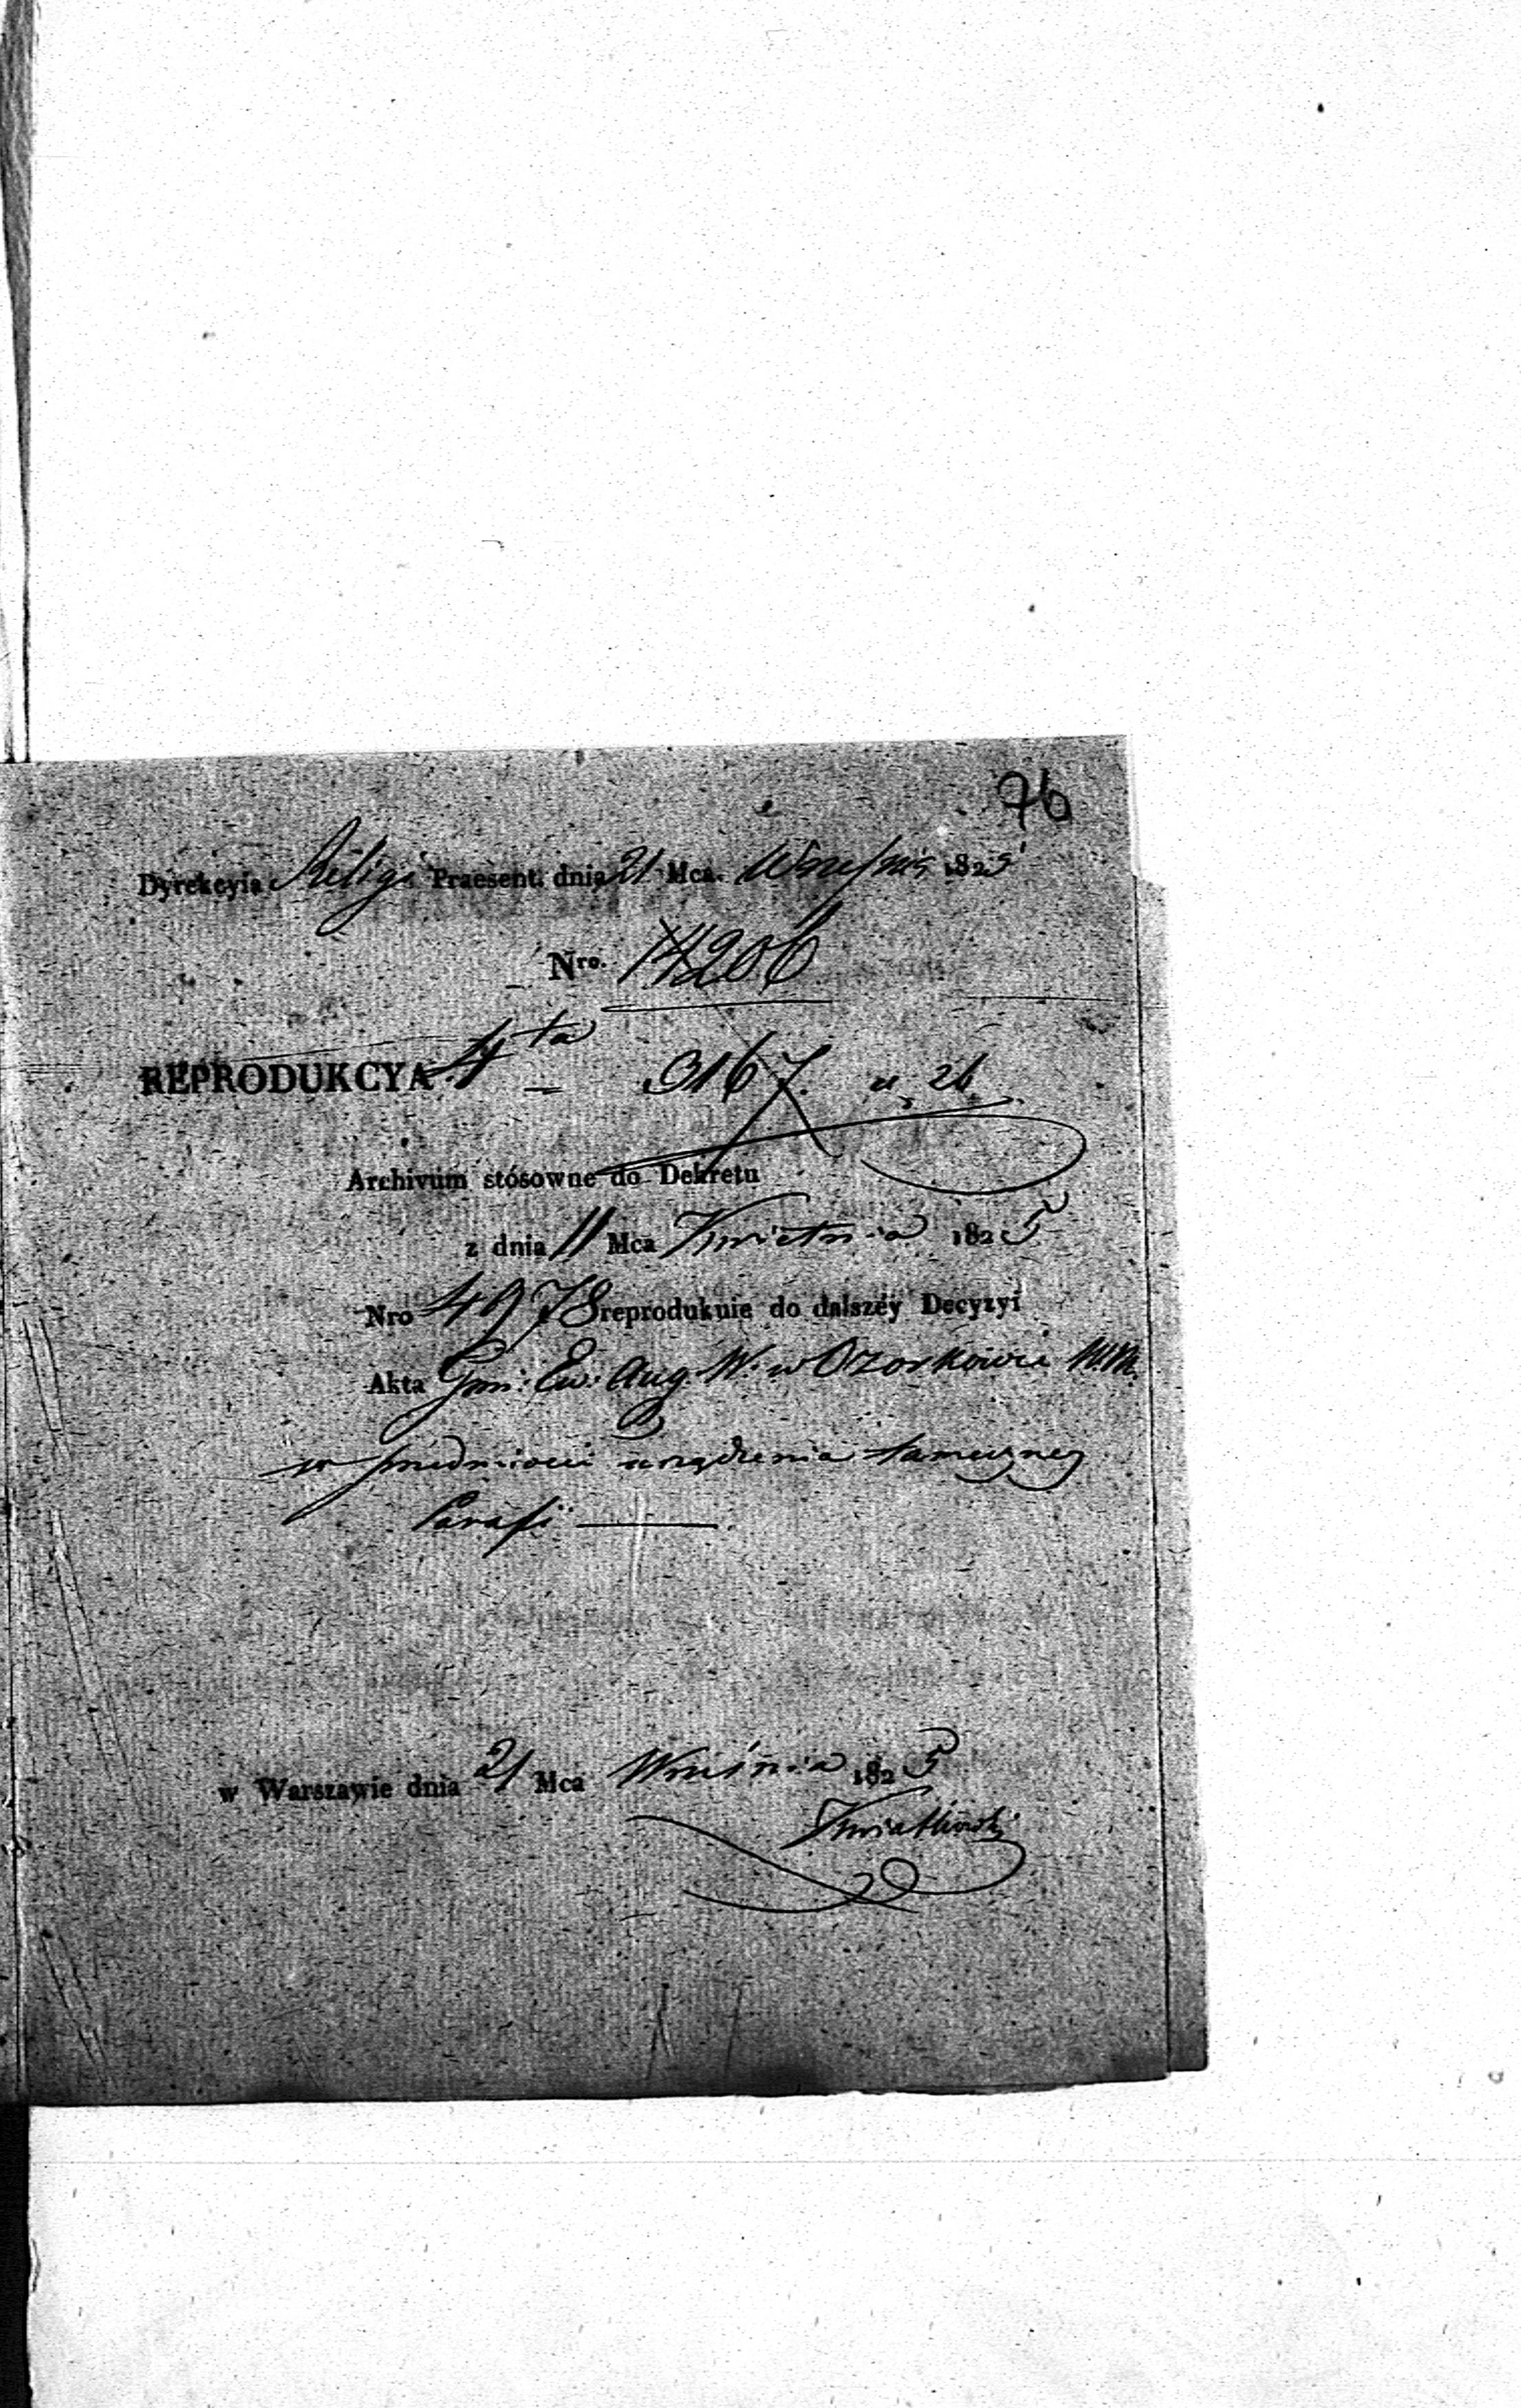 76
Dyrekcyia Religi Praesent. dnia 21 Mca. Września 1825
Nro. 14206
REPRODUKCYA 4ta — 3167. 26
Archivum stósowne do Dekretu
z dnia 11 Mca Kwietnia 1825
Nro 4978 reprodukuie do dalszéy Decyzyi
Akta Gm: Ew: Aug. W. w Ozorkowie
w przedmiocie urządzenia tameczney
Parafi —
w Warszawie dnia 21 Mca Września 1825
Kwiatkowski